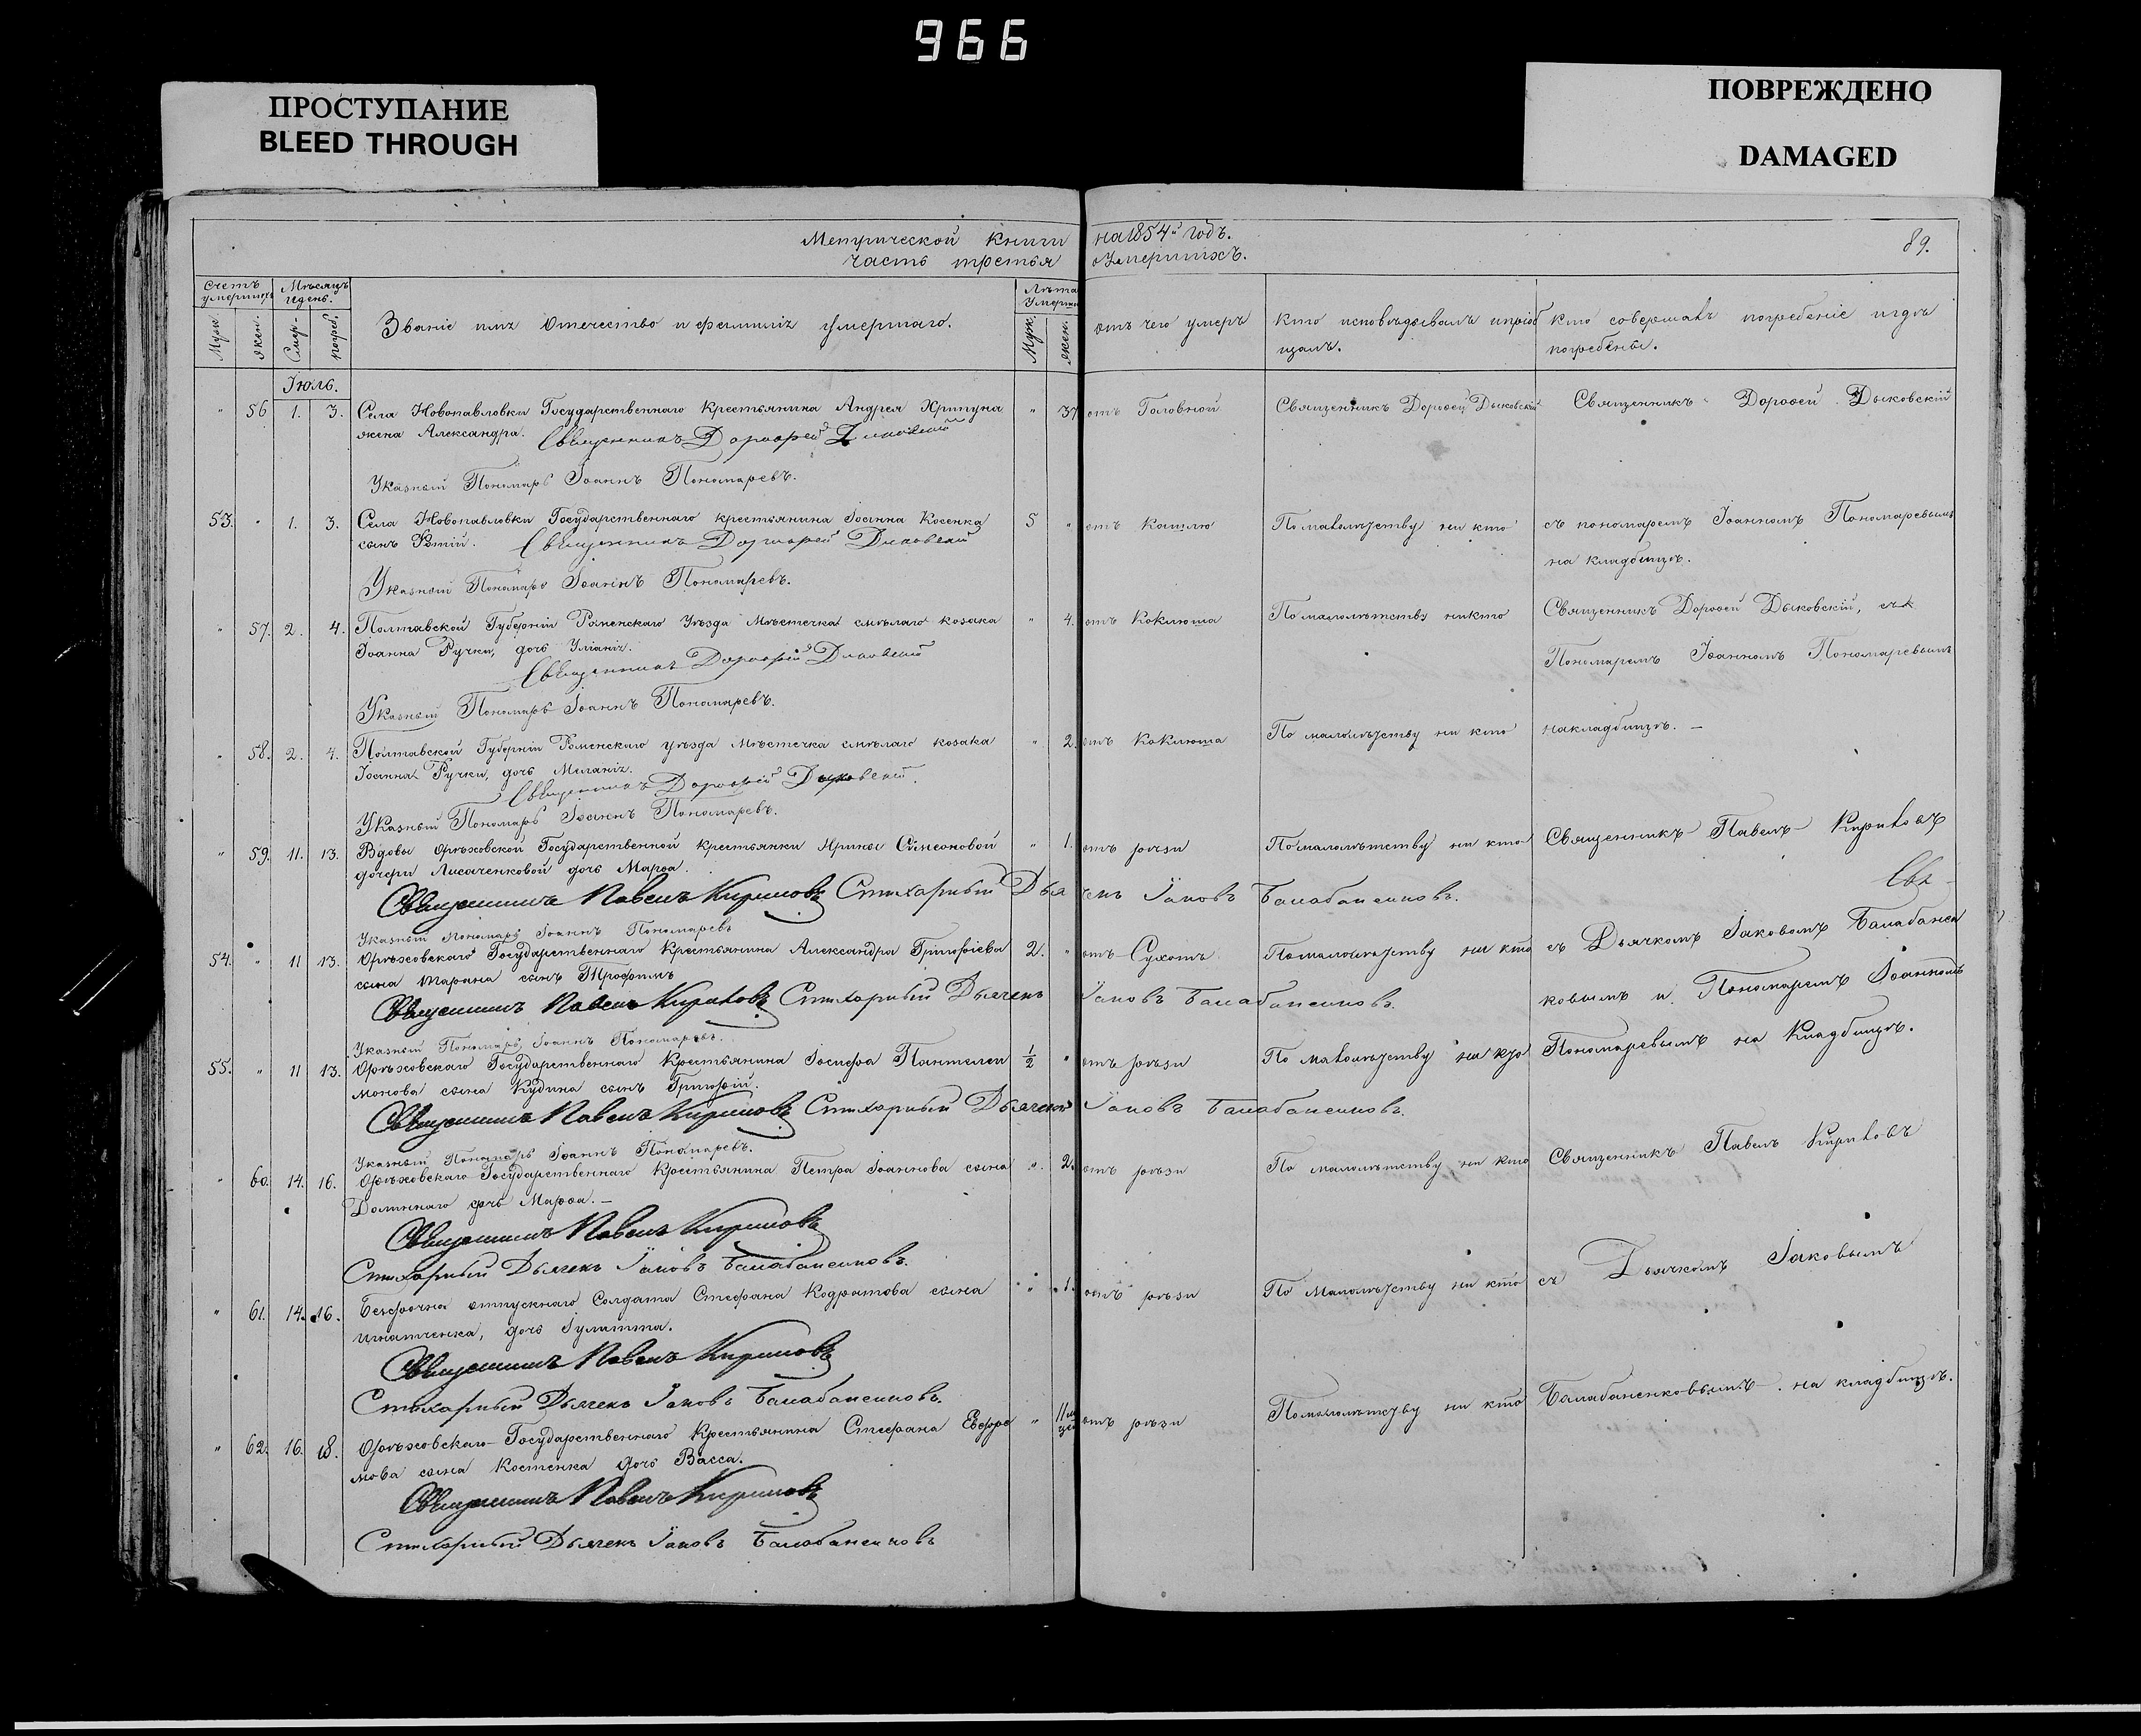 966
ПРОСТУПАНИЕ
BLEED THROUGH
ПОВРЕЖДЕНО
DAMAGED
Метрической книги на 1854й годъ. 89.
часть третья о Умершихъ.
Счетъ умершихъ Мѣсяцъ и день.
Муж. жен. Смер. погреб.
Званіе имя отечество и фамилія умершаго.
Лѣта Умерш
Муж. жен.
отъ чего умеръ
Кто исповѣдывалъ и пріоб
щалъ.
кто совершалъ погребеніе и гдѣ
погребены.
Іюль.
" 56 1. 3. Села Новопавловки Государственнаго крестьянина Андрея Хрипуна " 37 отъ Головной Священникъ Дорофей Дыковскій Священникъ Дорофей Дыковскій
жена Александра. Священникъ Дорофей Диковский
Указный Пономарь Іоаннъ Пономаревъ.
53. " 1. 3. Села Новопавловки Государственнаго крестьянина Іоанна Косенка 5 " отъ Кашлю По малолѣтству ни кто съ пономаремъ Іоанномъ Пономаревымъ
сынъ Фотій. Священникъ Дорофей Диковский
на кладбищѣ.
Указный Пономарь Іоаннъ Пономаревъ.
" 57. 2. 4. Полтавской Губерніи Роменскаго Уѣзда Мѣстечка смѣлаго козака " 4. отъ Коклюша По малолѣтству никто Священникъ Дорофей Дыковскій, съ
Іоанна Ручки, дочь Уліанія.
Священникъ Дорофей Диковский
Пономаремъ Іоанномъ Пономаревымъ
Указный Пономарь Іоаннъ Пономаревъ.
" 58. 2. 4. Полтавской Губерніи Роменскаго уѣзда Мѣстечка смѣлаго козака " 2. отъ Коклюша По малолѣтству ни кто на кладбищѣ. —
Іоанна Ручки, дочь Миланія.
Священникъ Дорофей Дыковский.
Указный Пономарь Іоаннъ Пономаревъ.
" 59. 11. 13. Вдовы Орѣховской Государственной крестьянки Ирины Симеоновой " 1. отъ рѣзи По малолѣтству ни кто Священникъ Павелъ Кириловъ
дочери Лисаченковой дочь Марфа.
Священникъ Павелъ Кириловъ Стихарный Дьячекъ Іаковъ Балабаненковъ.
Указный Пономарь Іоаннъ Пономаревъ
54. " 11 13. Орѣховскаго Государственнаго Крестьянина Александра Григоріева 2. " отъ Сухотъ По малолѣтству ни кто съ Дьячкомъ Іаковомъ Балабанен
сына Тарана сынъ Трофимъ
Священникъ Павелъ Кириловъ Стихарный Дьячекъ Іаковъ Балабаненковъ.
ковымъ и Пономаремъ Іоанномъ
Указный Пономарь Іоаннъ Пономаревъ.
55. " 11 13. Орѣховскаго Государственнаго Крестьянина Іосифа Пантелеи ½ " отъ рѣзи По малолѣтству ни кто Пономаревымъ на Кладбищѣ.
монова сына Кудина сынъ Григорій.
Священникъ Павелъ Кириловъ Стихарный Дьячекъ Іаковъ Балабаненковъ.
Указный Пономарь Іоаннъ Пономаревъ.
" 60. 14. 16. Орѣховскаго Государственнаго Крестьянина Петра Іоаннова сына " 2. отъ рѣзи По малолѣтству ни кто Священникъ Павелъ Кириловъ
дочь Марфа. —
Священникъ Павелъ Кириловъ
Стихарный Дьячекъ Іаковъ Балабаненковъ.
" 61. 14. 16. отпускнаго Солдата Стефана Кодратова сына " 1. отъ рѣзи По Малолѣтству ни кто съ Дьячкомъ Іаковымъ
Игнатченка, дочь Іулитта.
Священникъ Павелъ Кириловъ
Стихарный Дьячекъ Іаковъ Балабаненковъ.
" 62. 16. 18. Орѣховскаго Государственнаго Крестьянина Стефана Ефре " 11 отъ рѣзи По малолѣтству ни кто Балабаненковымъ на кладбищѣ.
мова сына Костенка дочь Васса.
Священникъ Павелъ Кириловъ
Стихарный Дьячекъ Іаковъ Балабаненковъ